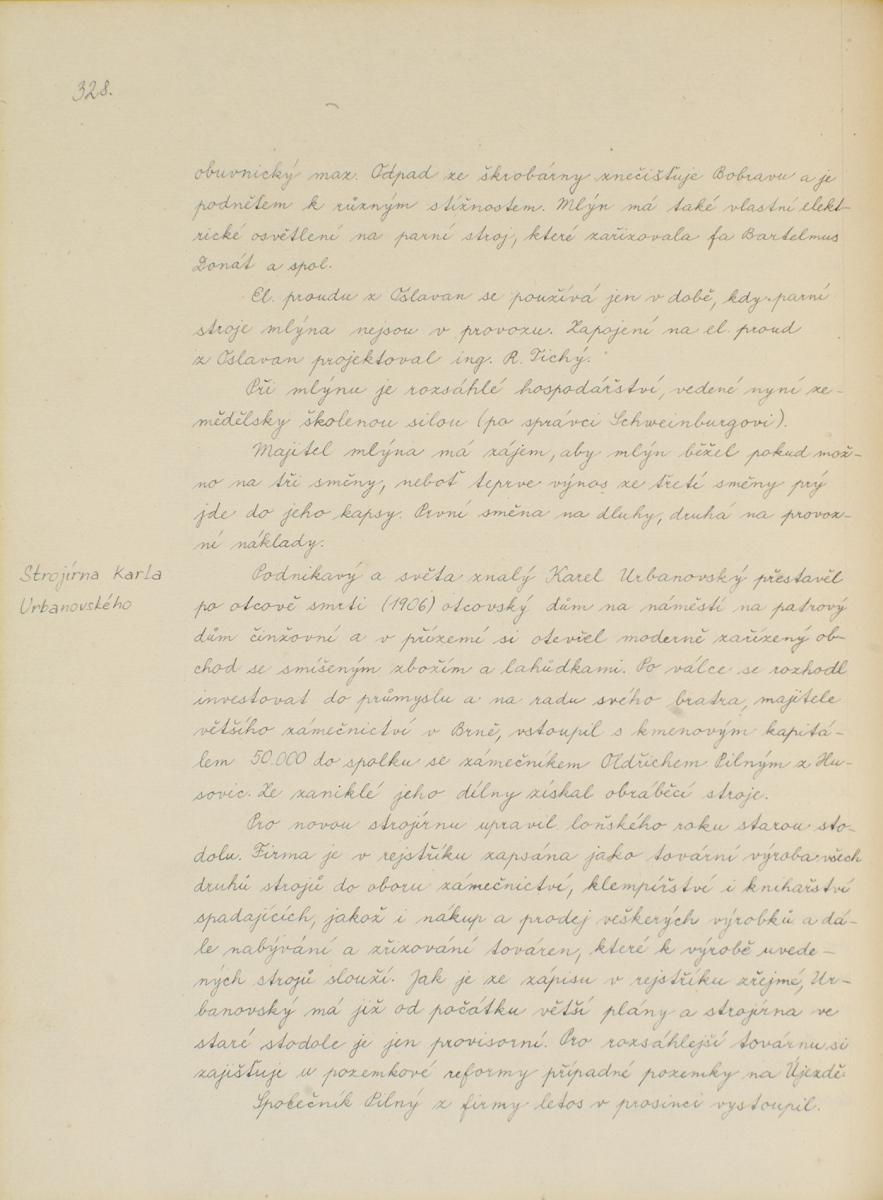 328.
obuvnický maz. Odpad ze škrobárny znečišťuje Bobravu a je
podnětem k různým stížnostem. Mlýn má také vlastní elekt-
rické osvětlení na parní stroj, které zařizovala fa Bartelmus
Donát a spol.
El. proudu z Oslavan se používá jen v době, kdy parní
stroje mlýna nejsou v provozu. Zapojení na el. proud
z Oslavan projektoval ing. R. Tichý.
Při mlýnu je rozsáhlé hospodářství, vedené nyní ze-
mědělsky školenou silou (po správci Schweinburgovi).
Majitel mlýna má zájem, aby mlýn běžel pokud mož-
no na tři směny, neboť teprve výnos ze třetí směny prý
jde do jeho kapsy. První směna na dluhy, druhá na provoz-
ní náklady.
Strojírna Karla
Urbanovského
Podnikavý a světa znalý Karel Urbanovský přestavěl
po otcově smrti (1906) otcovský dům na náměstí na patrový
dům činžovní a v přízemí si otevřel moderně zařízený ob-
chod se smíšeným zbožím a lahůdkami. Po válce se rozhodl
investovat do průmyslu a na radu svého bratra, majitele
většího zámečnictví v Brně, vstoupil s kmenovým kapitá-
lem 50.000 do spolku se zámečníkem Oldřichem Pilným z Hu-
sovic. Ze zaniklé jeho dílny získal obráběcí stroje.
Pro novou strojírnu upravil loňského roku starou sto-
dolu. Firma je v rejstříku zapsána jako tovární výroba všech
druhů strojů do oboru zámečnictví, klempířství i knihařství
spadajících, jakož i nákup a prodej veškerých výrobků a dá-
le nabývání a zřizování továren, které k výrobě uvede-
ných strojů slouží. Jak je ze zápisu v rejstříku zřejmé, Ur-
banovský má již od počátku větší plány a strojírna ve
staré stodole je jen provisorní. Pro rozsáhlejší továrnu si
zajišťuje u pozemkové reformy případné pozemky na Újezdě.
Společník Pilný z firmy letos v prosinci vystoupil.